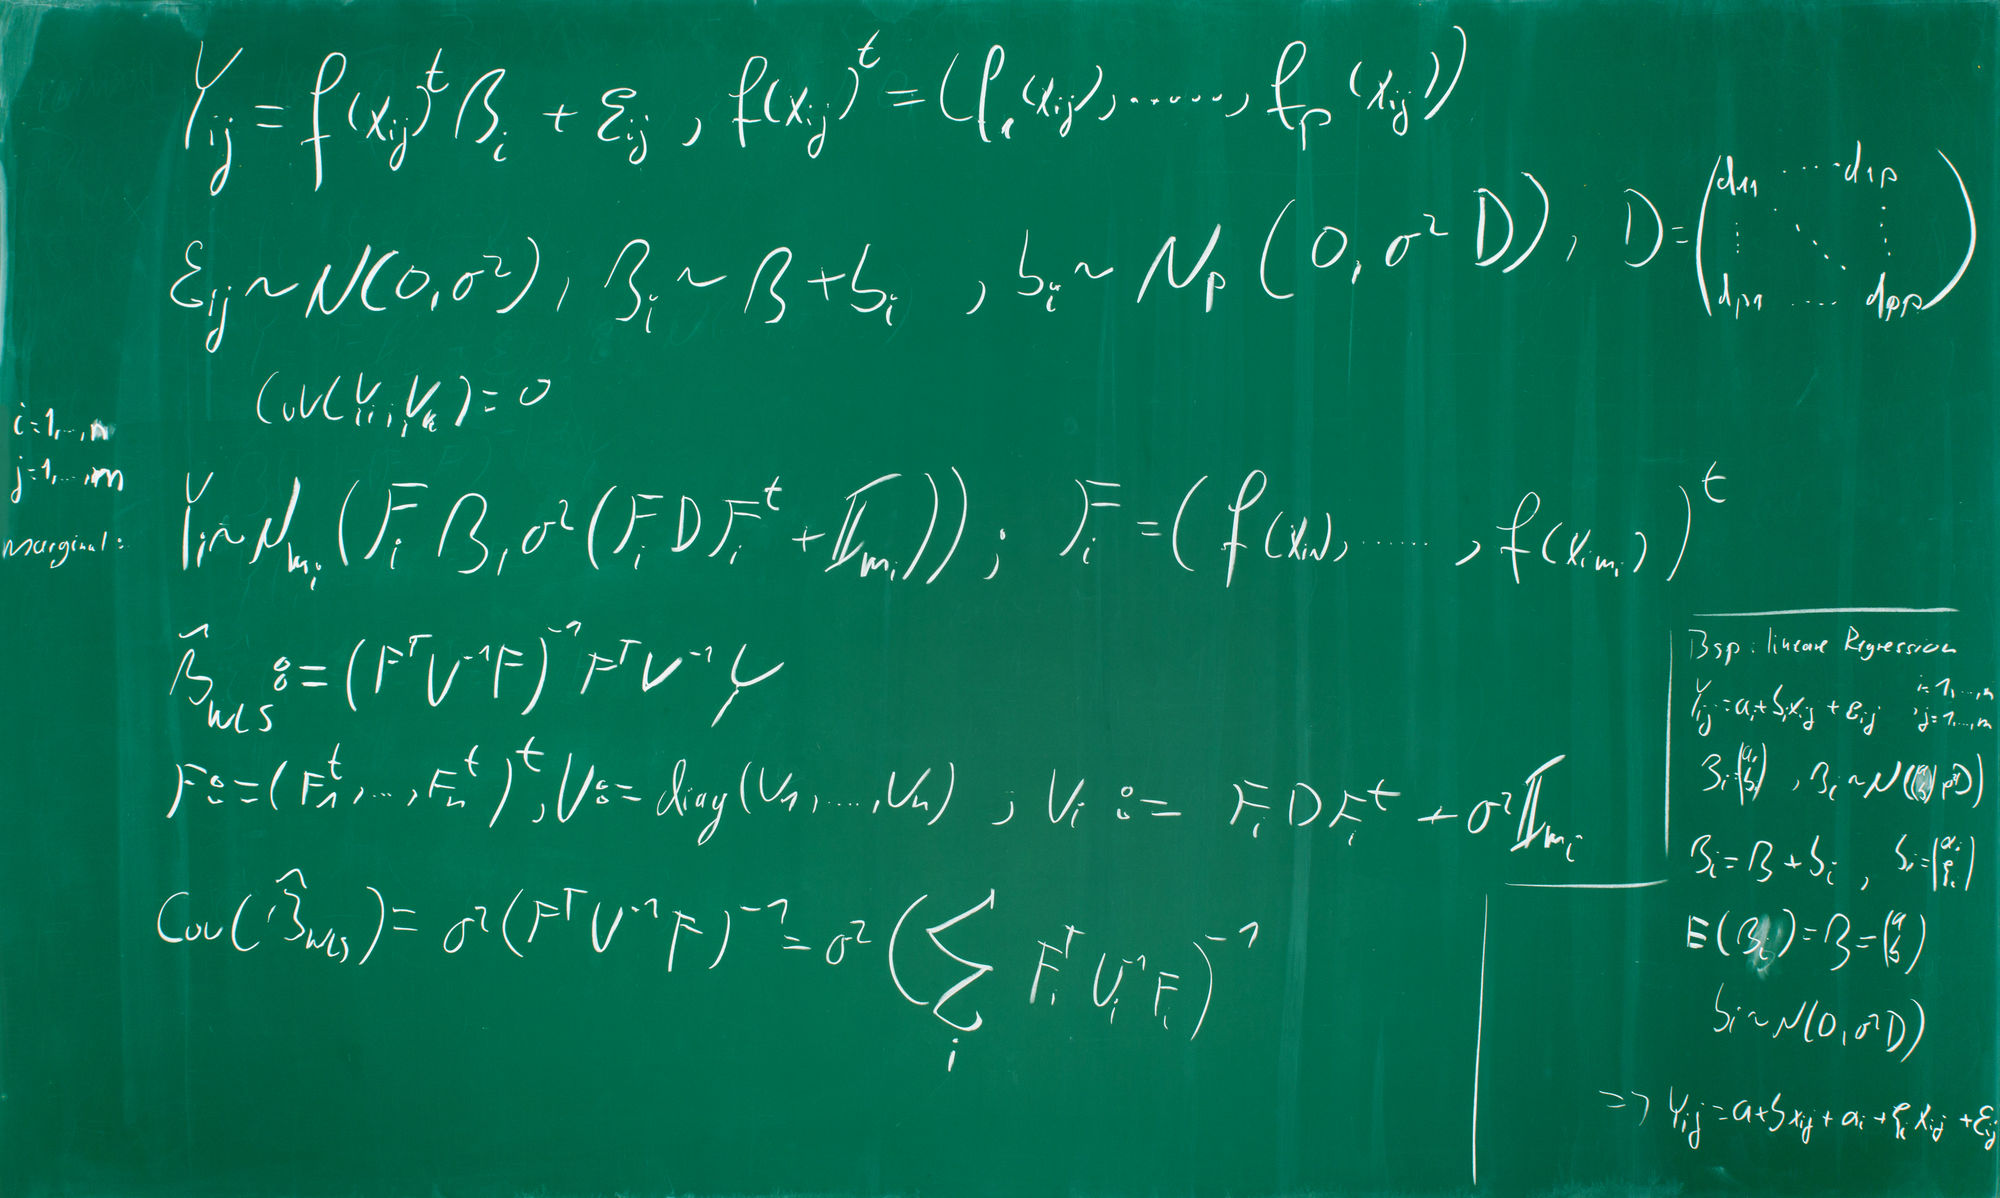 Y_ij = f(x_ij)^t β_i + ε_ij , f(x_ij)^t = (f_1(x_ij), ......, f_p(x_ij))
ε_ij ~ N(0, σ²), β_i ~ β + b_i , b_i ~ N_p(0, σ² D), D = (d_11 ... d_1p ⋮ ⋱ ⋮ d_p1 ... d_pp)
Cov( ) = 0
i=1,...,n
j=1,...,m
marginal:
Y_i ~ N_{m_i}(F_i β, σ²(F_i D F_i^t + 𝕀_{m_i})); F_i = (f(x_i1), ......, f(x_{im_i}))^t
β̂_WLS := (F^T V^-1 F)^-1 F^T V^-1 Y
F := (F_1^t, ..., F_n^t)^t, V := diag(V_1, ..., V_n) ; V_i := F_i D F_i^t + σ² 𝕀_{m_i}
Cov(β̂_WLS) = σ²(F^T V^-1 F)^-1 = σ²(∑_i F_i^T V_i^-1 F_i)^-1
Bsp.: lineare Regression
Y_ij = a_i + b_i x_ij + ε_ij , i=1,...,n j=1,...,m
β_i (a_i b_i) , β_i ~ N(
β_i = β + b_i , b_i = (α_i ξ_i)
E(β_i) = β = (a b)
b_i ~ N(0, σ² D)
=> Y_ij = a + b x_ij + α_i + ξ_i x_ij + ε_ij